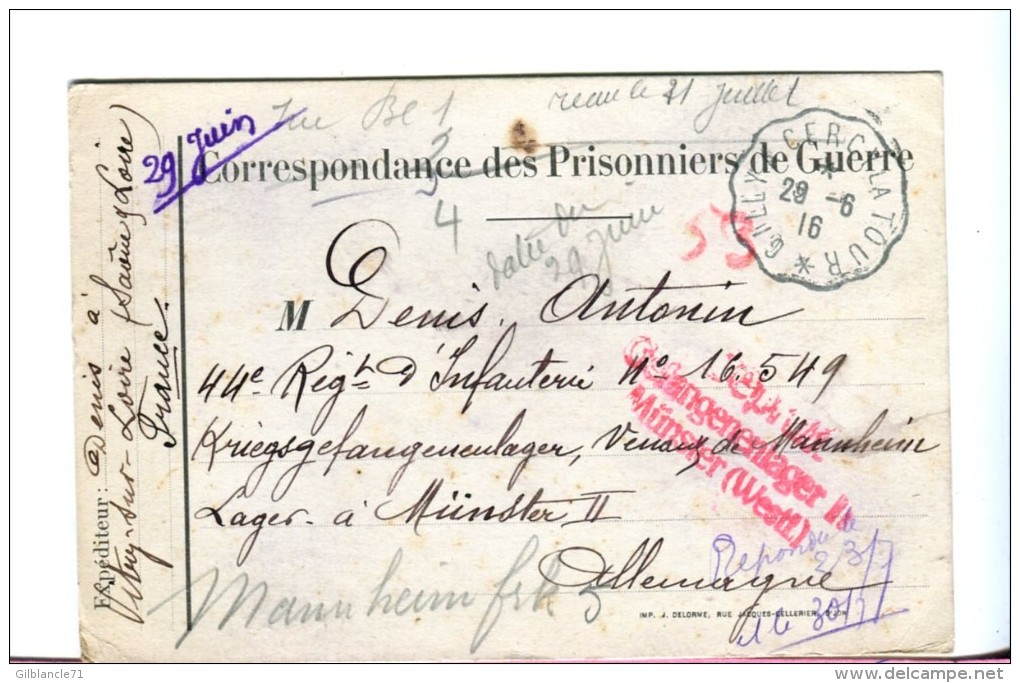 Bl 1
reçu le 21 juillet
29 Juin
3
Correspondance des Prisonniers de Guerre
4
datée du
29 Juin
53
GILLY * CERC-LA TOUR *
29 -6
16
M Denis. Antonin
44e Régt d'Infanterie No 16.549
Kriegsgefangenenlager, Venant de Mannheim
Lager à Münster II
Allemagne
Geprüft
Gefangenenlager II
Münster (Westf.)
Mannheim frk 5
Répondu le
23/7
et le 30/7
IMP. J. DELORME, RUE JACQUES-CELLERIER, DIJON
Expéditeur : Denis à
Vitry-sur-Loire (Saône & Loire)
France.
Gilblancle71
www.delcampe.net